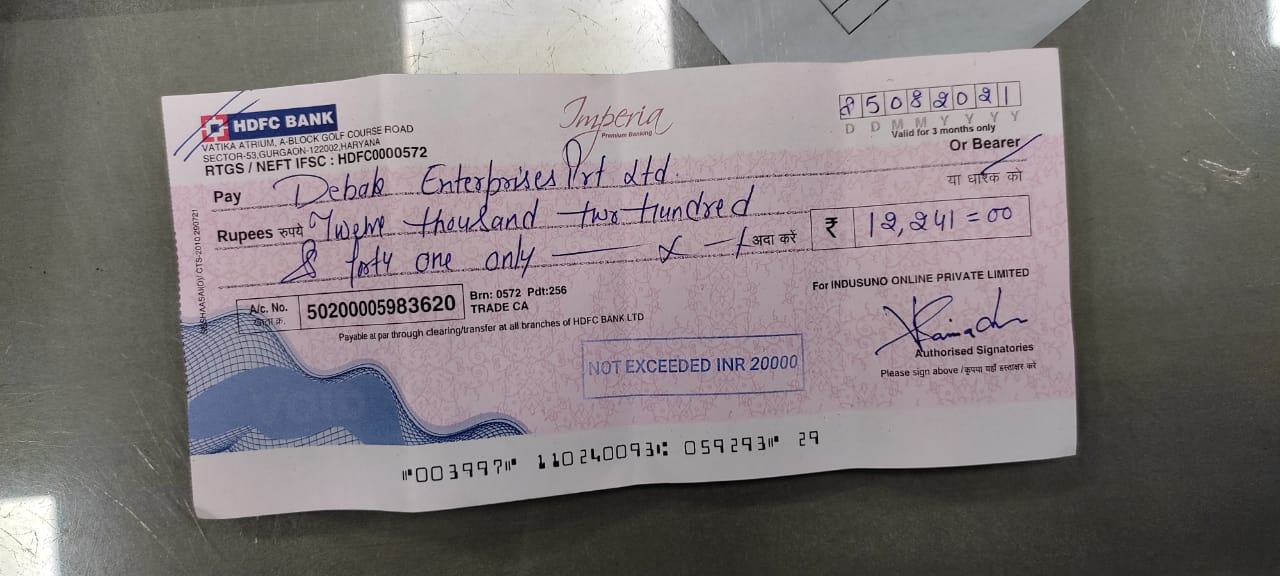 HDFC BANK
VATIKA ATRIUM, A-BLOCK GOLF COURSE ROAD
SECTOR-53,GURGAON-122002,HARYANA
RTGS / NEFT IFSC : HDFC0000572
Imperia
Premium Banking
25082021
D D M M Y Y Y Y
Valid for 3 months only
Or Bearer
या धारक को
Pay Debak Enterprises Pvt Ltd.
Rupees रुपये Twelve thousand two hundred
& forty one only अदा करें
₹ 12,241=00
A/c. No. 50200005983620 Brn: 0572 Pdt:256
खाता क्र. TRADE CA
Payable at par through clearing/transfer at all branches of HDFC BANK LTD
For INDUSUNO ONLINE PRIVATE LIMITED
NOT EXCEEDED INR 20000
Authorised Signatories
Please sign above /कृपया यहाँ हस्ताक्षर करें
CTS-2010 290721
⑈003997⑈ 110240093⑆ 059293⑈ 29